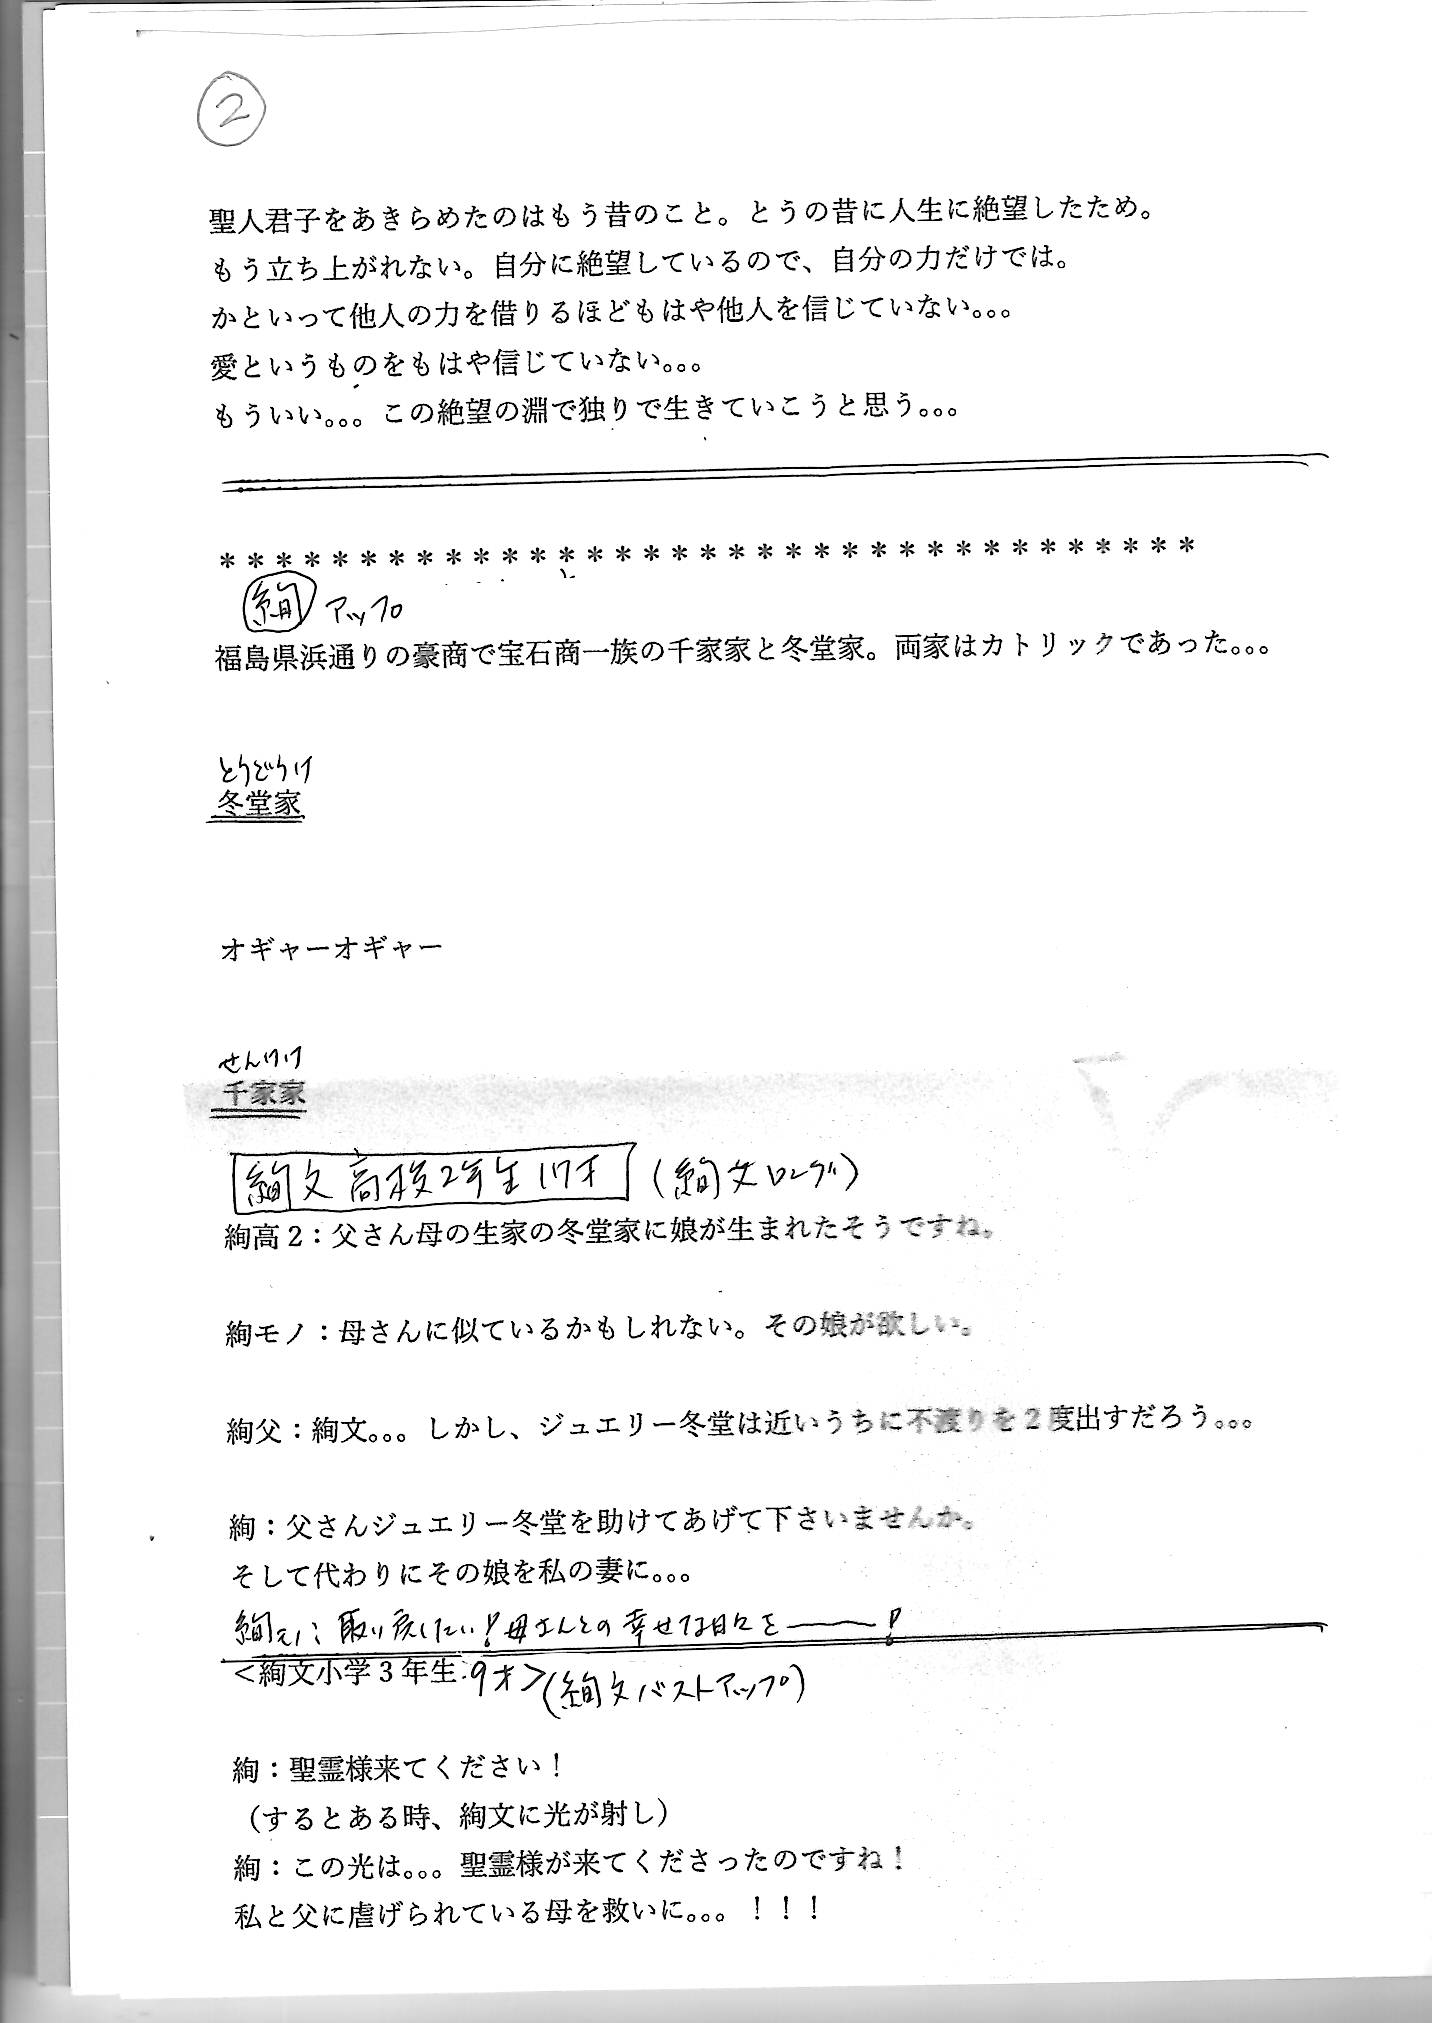 ②
聖人君子をあきらめたのはもう昔のこと。とうの昔に人生に絶望したため。
もう立ち上がれない。自分に絶望しているので、自分の力だけでは。
かといって他人の力を借りるほどもはや他人を信じていない。。。
愛というものをもはや信じていない。。。
もういい。。。この絶望の淵で独りで生きていこうと思う。。。
***********************************
絢 アップ
福島県浜通りの豪商で宝石商一族の千家家と冬堂家。両家はカトリックであった。。。
とうどうけ
冬堂家
オギャーオギャー
せんけけ
千家家
絢文高校2年生17才 (絢文ロング)
絢高2：父さん母の生家の冬堂家に娘が生まれたそうですね。
絢モノ：母さんに似ているかもしれない。その娘が欲しい。
絢父：絢文。。。しかし、ジュエリー冬堂は近いうちに不渡りを2度出すだろう。。。
絢：父さんジュエリー冬堂を助けてあげて下さいませんか。
そして代わりにその娘を私の妻に。。。
絢モノ：取り戻したい！母さんとの幸せな日々を――！
＜絢文小学3年生 9才＞(絢文バストアップ)
絢：聖霊様来てください！
（するとある時、絢文に光が射し）
絢：この光は。。。聖霊様が来てくださったのですね！
私と父に虐げられている母を救いに。。。！！！